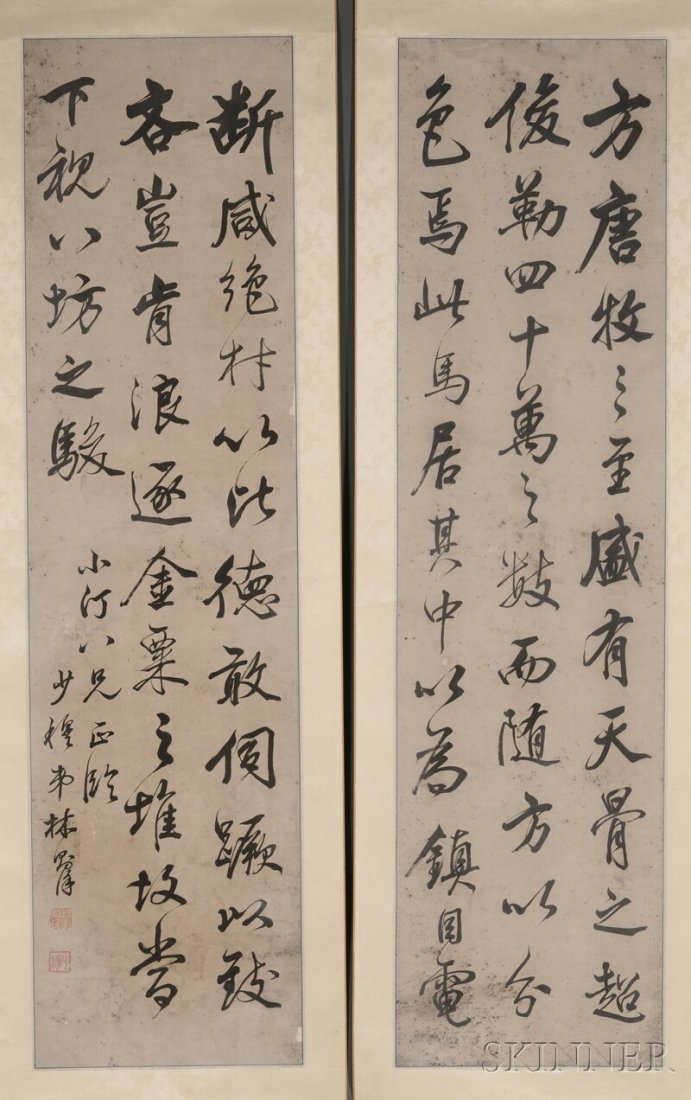 方唐牧之至盛有天骨之超
俊勒四十萬之數而隨方以分
色焉此馬居其中以為鎮目電
斷咸絶材以比德敢伺蹶以致
吝豈肯浪逐金粟之堆故當
下視八坊之駿
小汀八兄正臨
少穆弟林則徐
SKINNER